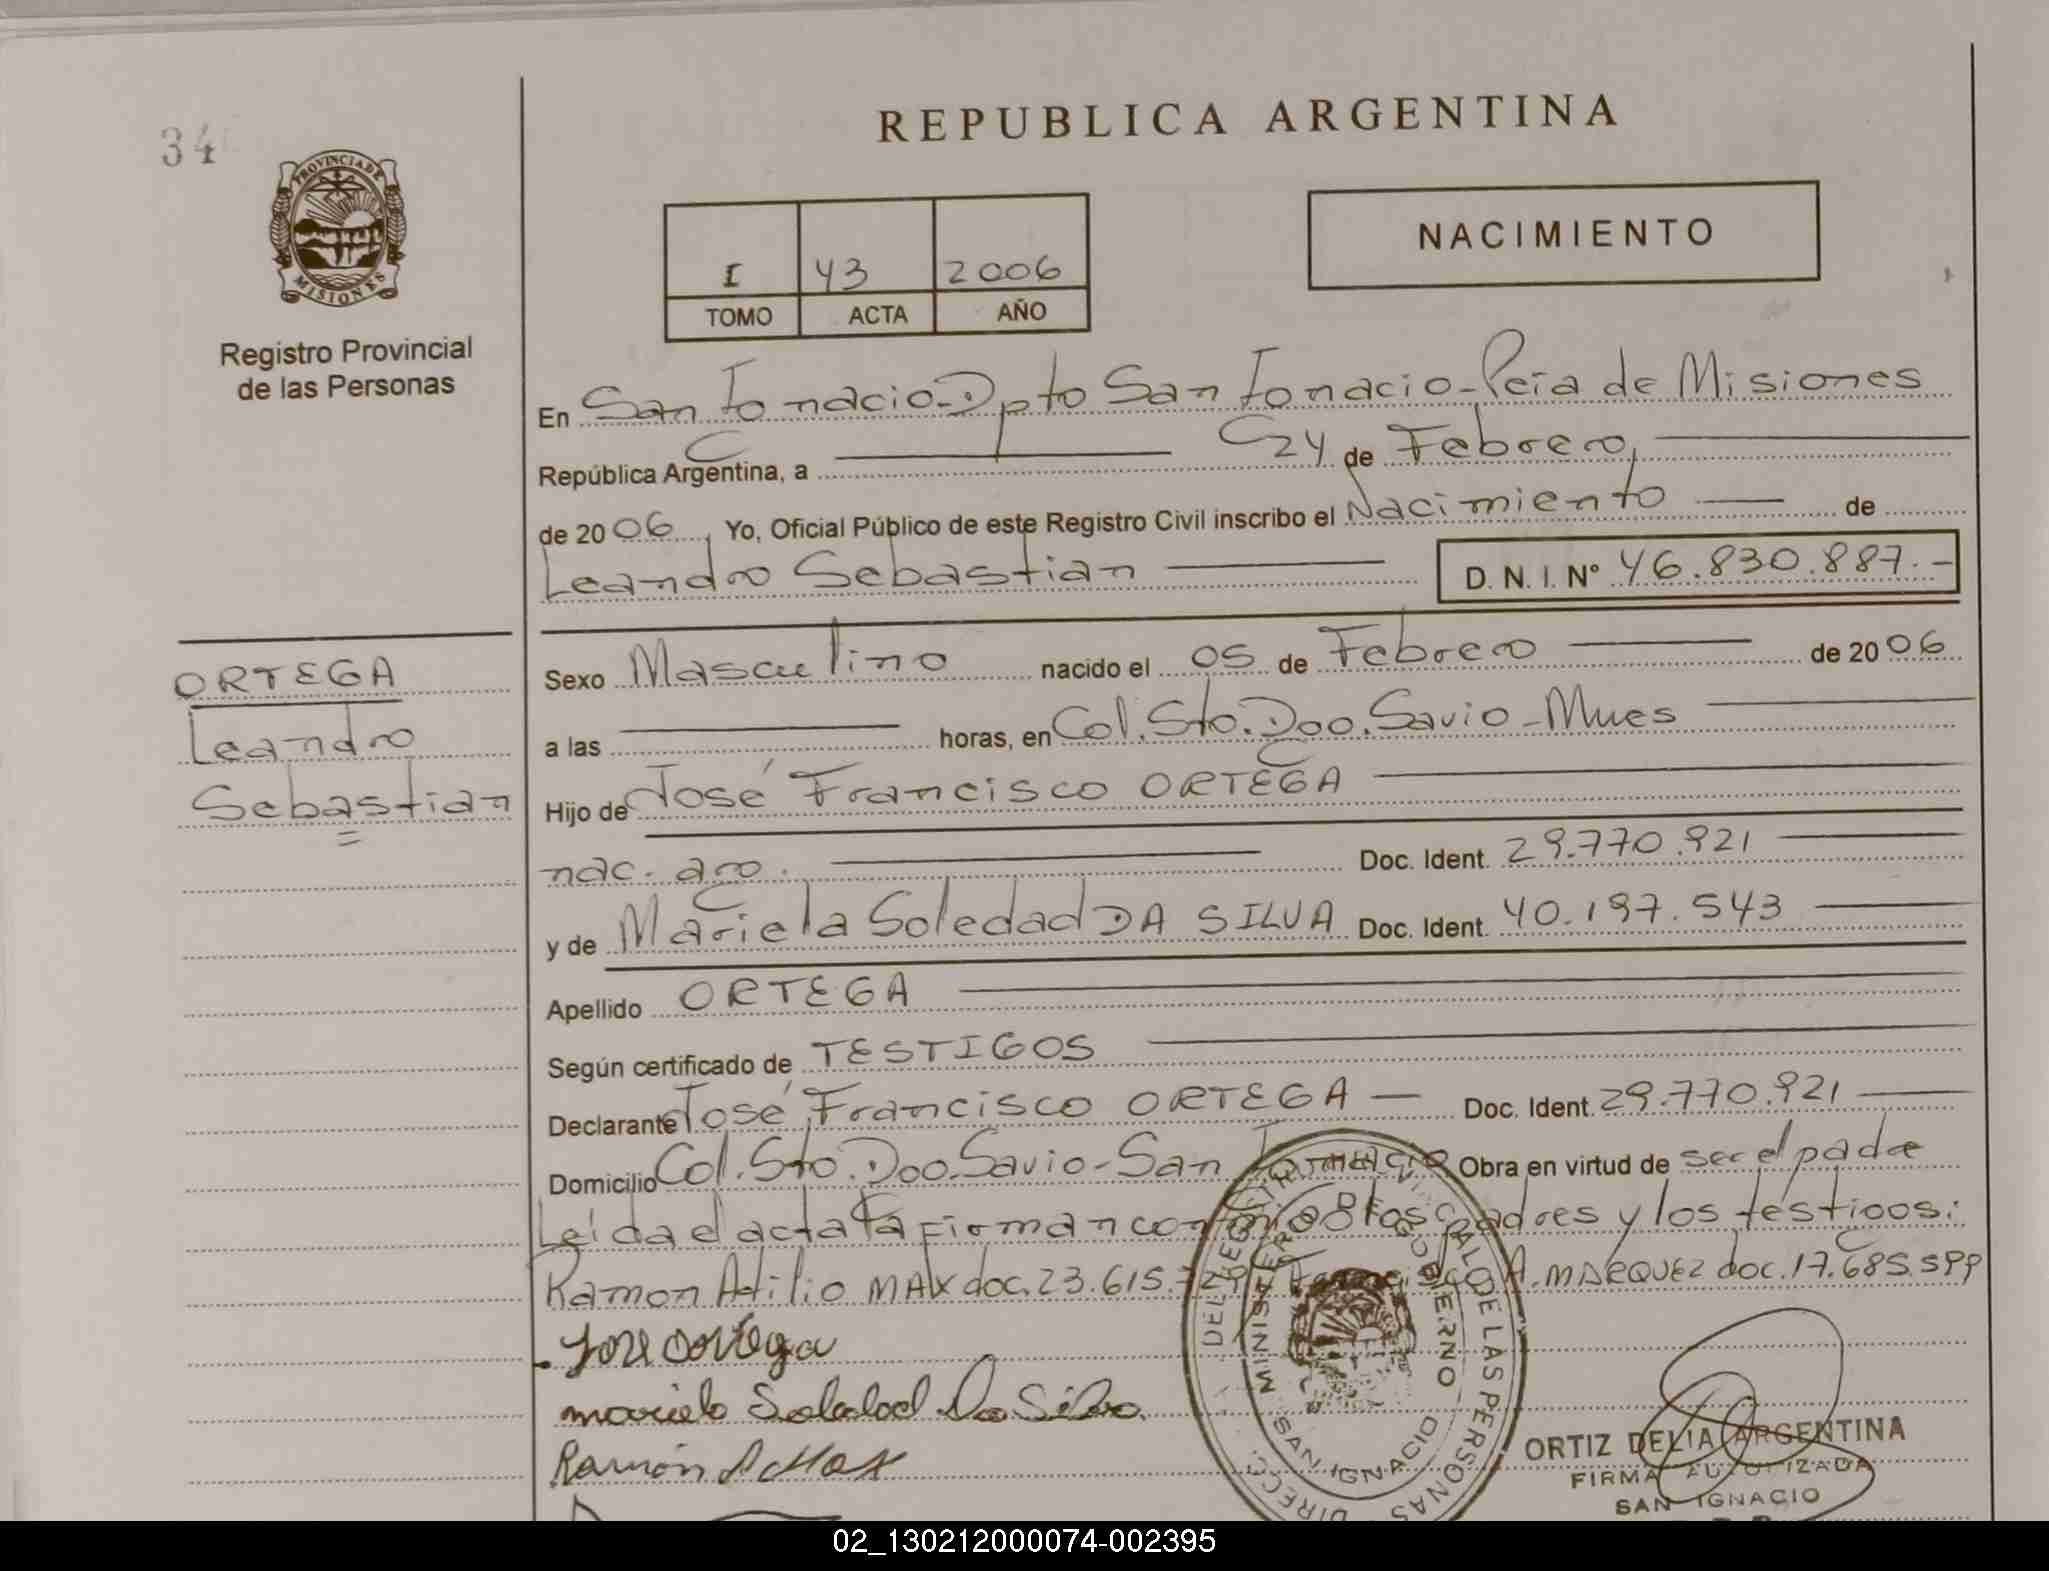 34
REPUBLICA ARGENTINA
PROVINCIA DE
MISIONES
Registro Provincial
de las Personas
I 43 2006
TOMO ACTA AÑO
NACIMIENTO
En San Ignacio - Dpto San Ignacio - Pcia de Misiones
República Argentina, a 24 de Febrero,
de 2006, Yo, Oficial Público de este Registro Civil inscribo el Nacimiento de
Leandro Sebastian D. N. I. N° 46.830.887.-
ORTEGA
Leandro
Sebastian
Sexo Masculino nacido el 05 de Febrero de 2006
a las horas, en Col. Sto. Dgo. Savio - Mnes
Hijo de José Francisco ORTEGA
nac. arg. Doc. Ident. 29.770.921
y de Mariela Soledad DA SILVA Doc. Ident. 40.197.543
Apellido ORTEGA
Según certificado de TESTIGOS
Declarante José Francisco ORTEGA - Doc. Ident. 29.770.921
Domicilio Col. Sto. Dgo. Savio - San Ignacio Obra en virtud de ser el padre
Leida el acta la firman conmigo los padres y los testigos:
Ramon Atilio MAX doc. 23.615. A. MARQUEZ doc. 17.685.599
Jose Ortega
mariela Soledad Da Silva
Ramón A Max
DIRECC. DEL REGISTRO PROVINCIAL DE LAS PERSONAS
MINISTERIO DE GOBIERNO
SAN IGNACIO
ORTIZ DELIA ARGENTINA
FIRMA AUTORIZADA
SAN IGNACIO
02_130212000074-002395